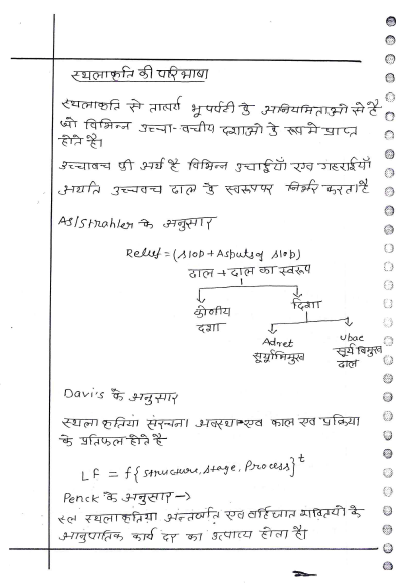 स्थलाकृति की परिभाषा
स्थलाकृति से तात्पर्य भूपर्पटी के अनियमिताओ से है
जो विभिन्न उच्चा-वचीय दशाओ के रूप मे प्राप्त
होते है।
उच्चावच का अर्थ है विभिन्न उचाईयाँ एवं गहराईयाँ
अर्थात उच्चवच ढाल के स्वरूपपर निर्भर करता है
AS/Strahler के अनुसार
Relief = (Slop + Asbuts of Slop)
ढाल + ढाल का स्वरूप
कोणीय दिशा
दशा
Adret Ubac
सूर्याभिमुख सूर्य विमुख
ढाल
Davis के अनुसार
स्थलाकृतियां संरचना अवस्था एवं काल एवं प्रक्रिया
के प्रतिफल होते है
LF = f{structure, stage, Process}t
Penck के अनुसार →
स्थलाकृतिया अन्तर्जात एवं वर्हिजात शक्तियो के
आनुपातिक कार्य दर का उत्पाद होता है।